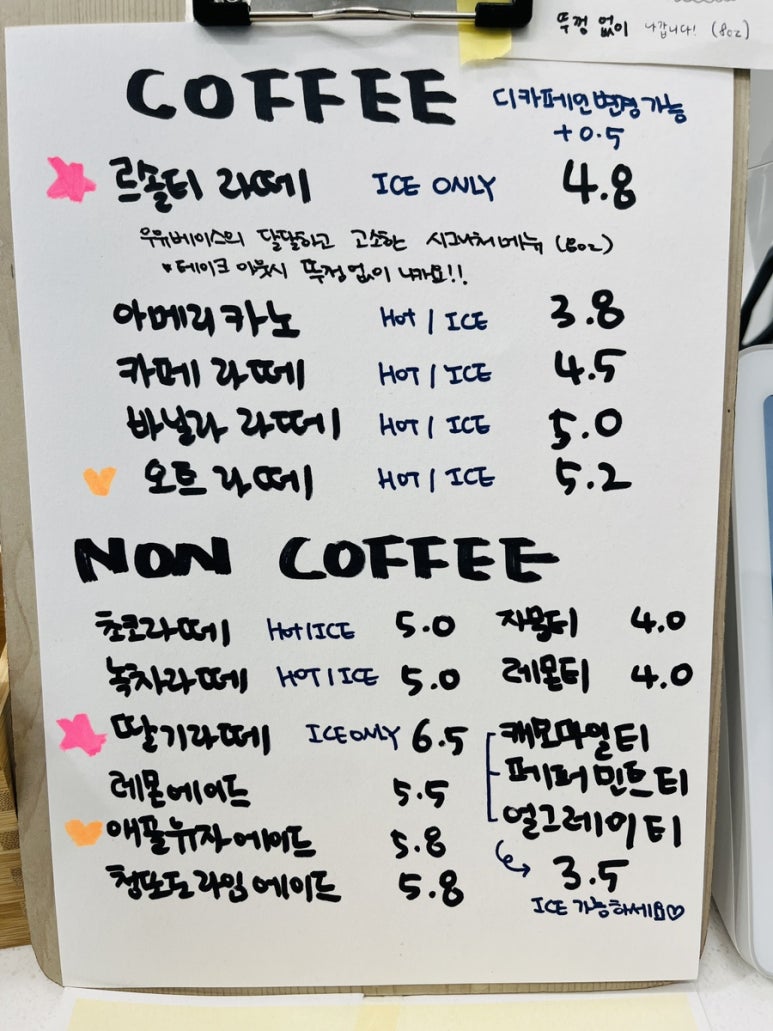 뚜껑 없이 나갑니다! (8oz)
COFFEE 디카페인변경가능
+0.5
르솔티 라떼 ICE ONLY 4.8
우유베이스의 달달하고 고소한 시그니처메뉴 (8oz)
♥테이크 아웃시 뚜껑없이 나가요!!
아메리카노 Hot / ICE 3.8
카페 라떼 HOT / ICE 4.5
바닐라 라떼 HOT / ICE 5.0
오트 라떼 HOT / ICE 5.2
NON COFFEE
초코라떼 Hot/ICE 5.0
녹차라떼 HOT / ICE 5.0
딸기라떼 ICE ONLY 6.5
레몬에이드 5.5
애플유자에이드 5.8
청포도라임에이드 5.8
자몽티 4.0
레몬티 4.0
캐모마일티
페퍼민트티
얼그레이티
3.5
ICE 가능하세요♡